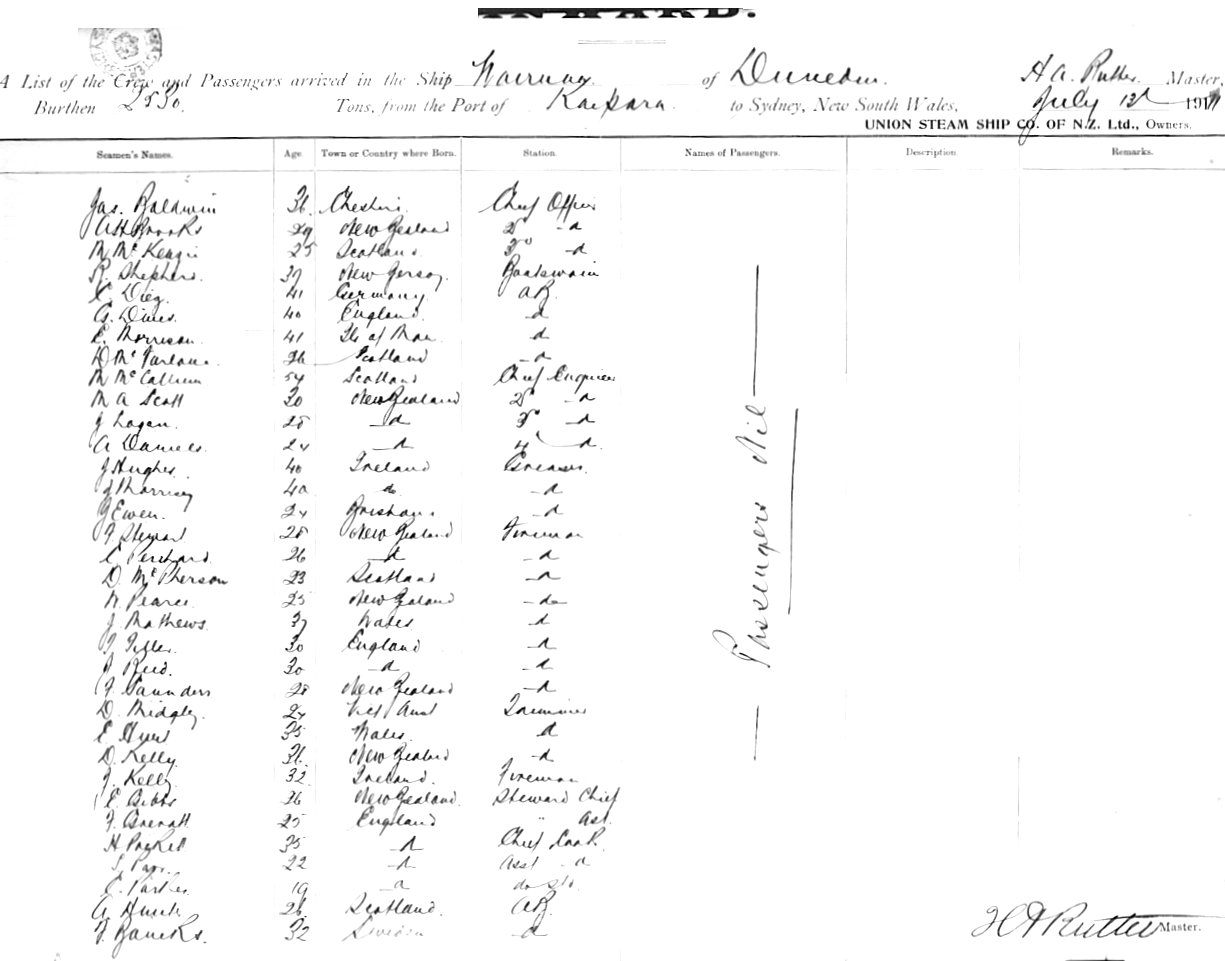 INWARD.
A List of the Crew and Passengers arrived in the Ship Wairuna of Dunedin. H A. Rutter Master,
Burthen 2530. Tons, from the Port of Kaipara to Sydney, New South Wales, July 12th 1911
UNION STEAM SHIP CO. OF N.Z. Ltd., Owners.
Seamen's Names. Age Town or Country where Born. Station. Names of Passengers. Description Remarks.
Jas. Baldwin 36 Cheshire Chief Officer
A H Brooks 29 New Zealand 2d -d
M McKenzie 25 Scotland 3d -d
R. Shepherd. 37 New Jersey Boatswain
C. Dieg. 41 Germany AB.
G. Dines. 40 England -d
E. Morrison. 41 Is of Man -d
D McFarlane. 26 Scotland -d
M McCallum 54 Scotland Chief Engineer
M A Scott 30 New Zealand 2d -d
J Logan. 28 -d 3d -d
A Daniels. 24 -d 4 d.
J Hughes. 40 Ireland Greaser.
J Morrisey 40 do -d
J Ewen. 24 Brisbane -d
F Stewart 28 New Zealand Fireman
C Perchard. 26 -d -d
D. McPherson 23 Scotland -d
W. Pearce. 25 New Zealand -do
J Mathews. 37 Wales -d
30 England -d
Reid. 30 -d -d
F. Saunders 28 New Zealand -d
D. Midgley. 24 Vict Aust Trimmer
E 35 Wales. d
D. Kelly. 36 New Zealand -d
J. Kelly 32 Ireland. Fireman
E. Bibbs 26 New Zealand. Steward Chief
F. 25 England " Ast.
H 35 -d Chief Cook.
S. 22 -d Asst -d
C. Parker 19 -d do
A. 26. Scotland. AB
F. 32 Sweden -d
Passengers Nil
H A Rutter Master.